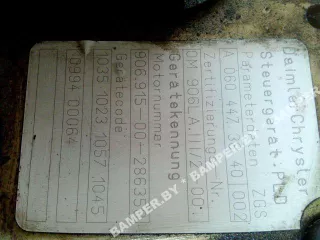 Daimler Chrysler
Steuergerät PLD
Parameterdaten ZGS
A 060 447 40 002
Zertifizierungs Nr.
OM 906LA.III/2-00
Gerätekennung
Motornummer
906.915-00-28635
Gerätecode
1035 1023 1057 1045
0994 00064
BAMPER.BY · BAMPER.BY